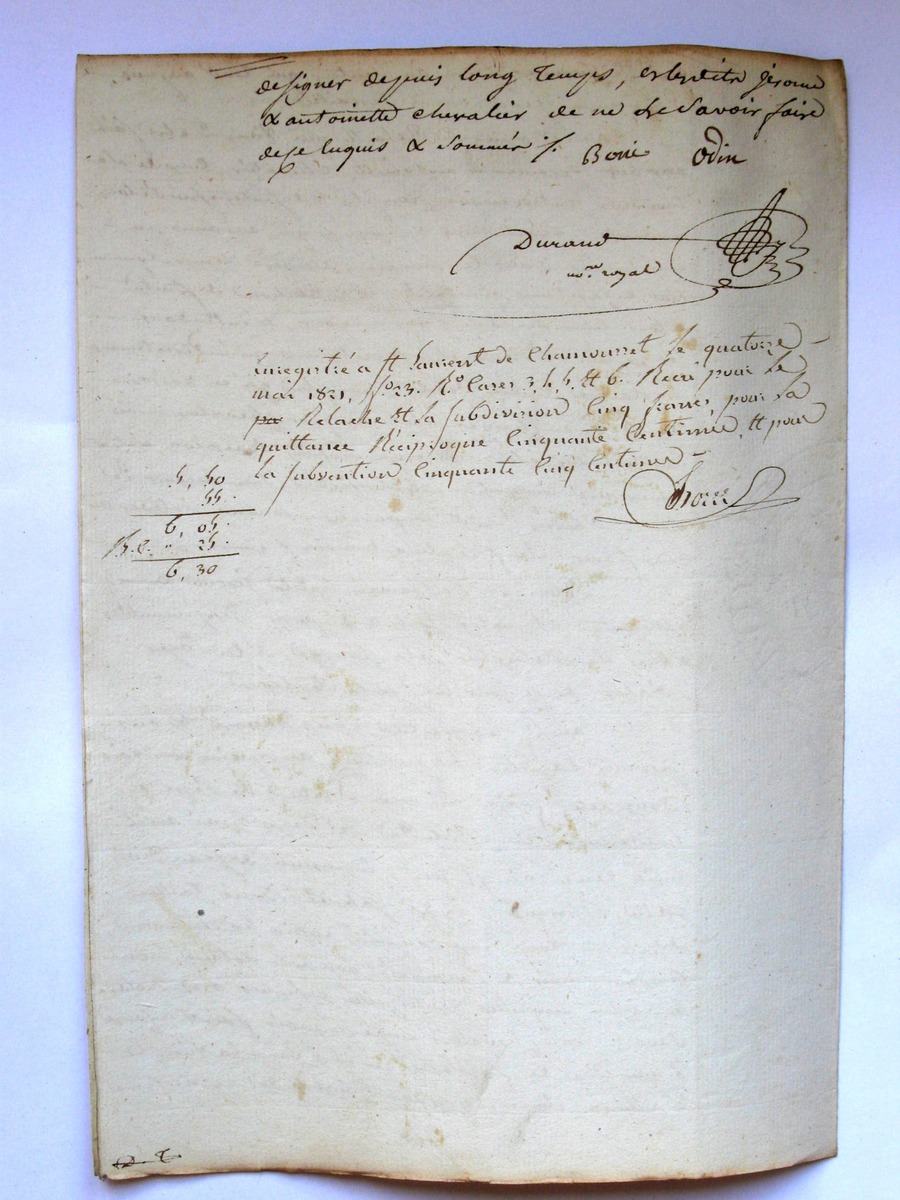 designer depuis long temps, et lesdits jérome
& antoinette chevalier de ne le savoir faire
de ce enquis & sommés /. Boüi Odin
Durand
no.re royal
Enregistré a St Laurent de Chamousset le quatorze
mai 1821, fo. 23. Ro. Cases 3, 4, 5. Et 6. Recu pour le
Relache Et la subdivision Cinq francs, pour la
quittance Réciproque Cinquante Centimes, Et pour
la subvention Cinquante Cinq Centimes
5, 50
55.
6, 05.
" 25.
6, 30